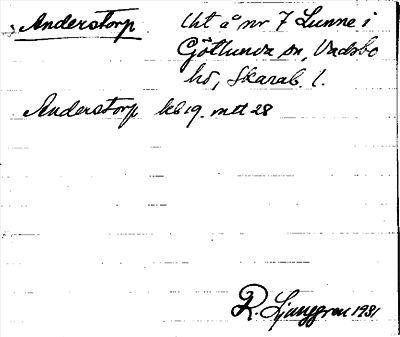 Anderstorp Uht å nr 7 Lunne i
Götlunda sn, Vadsbo
hd, Skarab. l.
Anderstorp kb 19. mtt 28
R. Ljunggren 1931